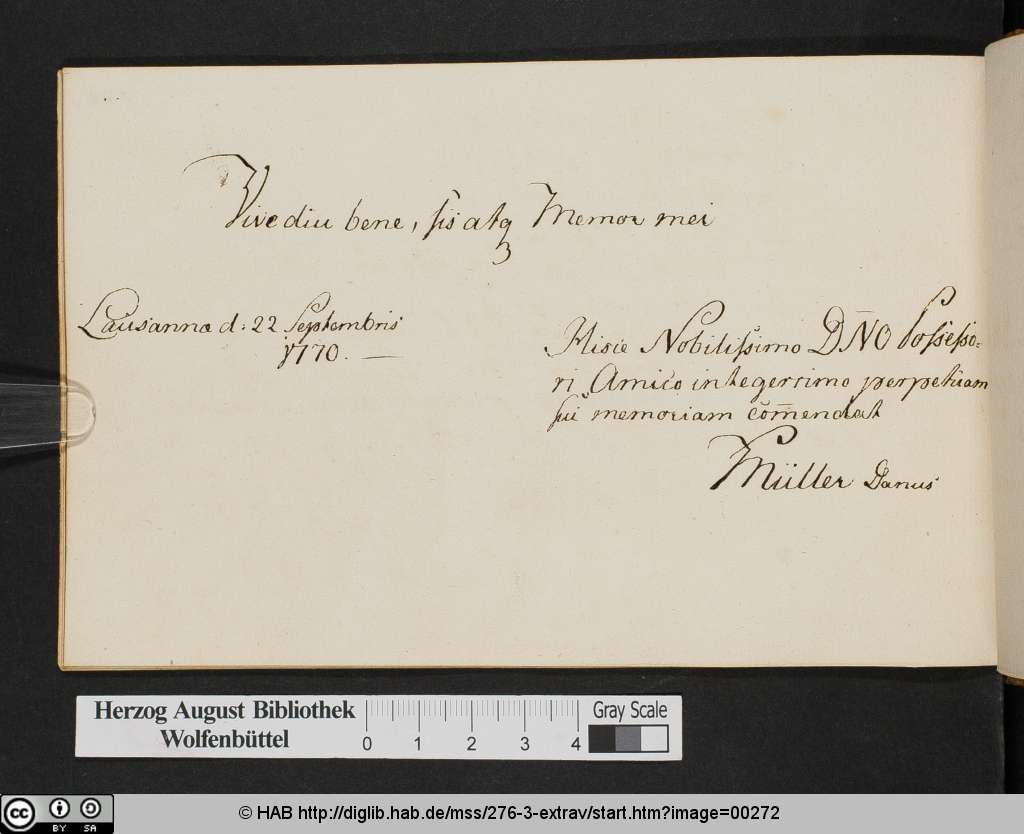 Vive diu bene, sis atq₃ Memor mei
Lausannæ d: 22 Septembris
1770. —
Nobilissimo DN̄O Possesso-
ri Amico integerrimo perpetuam
sui memoriam com̄endat
Müller Danus
Herzog August Bibliothek
Wolfenbüttel
0 1 2 3 4
Gray Scale
cc BY SA
© HAB http://diglib.hab.de/mss/276-3-extrav/start.htm?image=00272